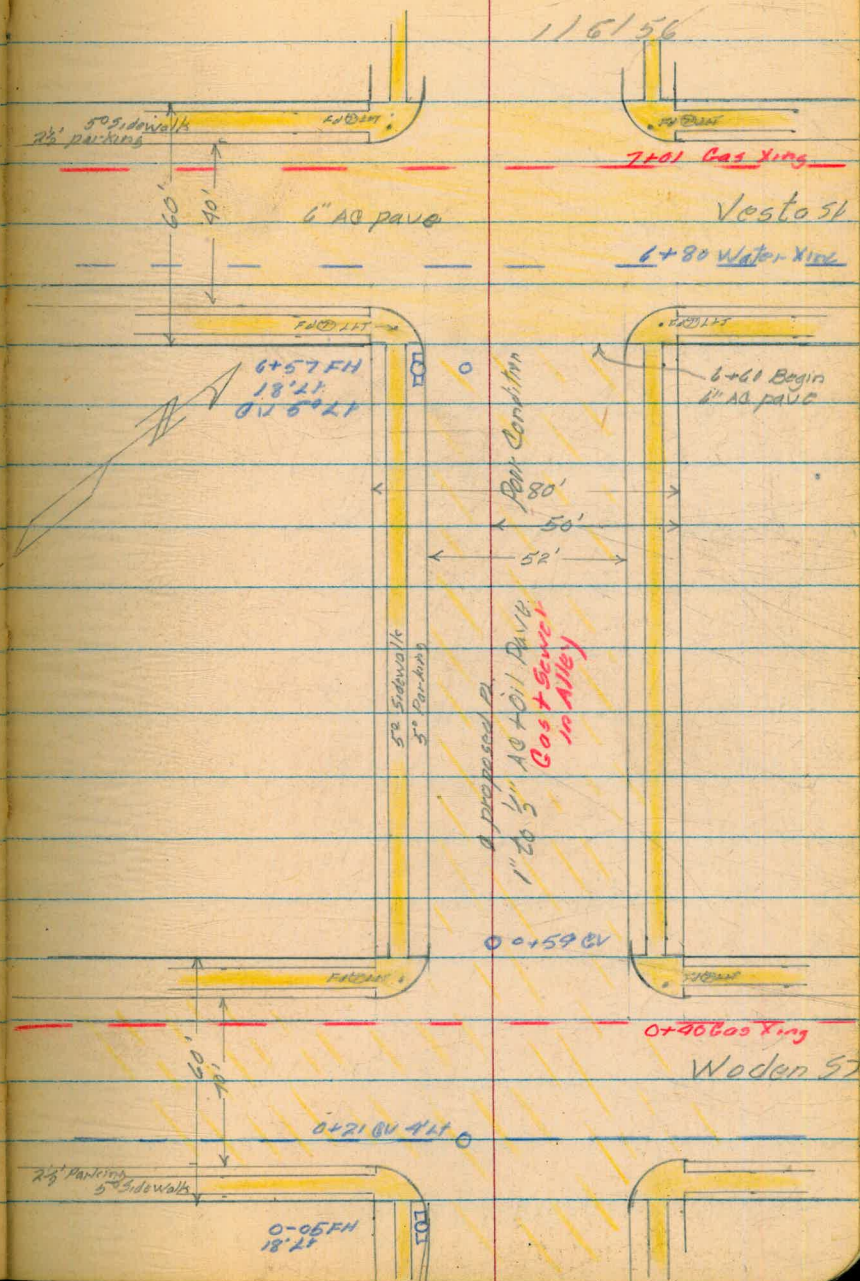 1/6/56
5⁰ Sidewalk
2½' parking
7+01 Gas Xing
60'
40'
6" AC pave
Vesta St
6+80 Water Xing
6+57 FH
18' Lt
GV 5⁰ Lt
6+60 Begin
6" AC pave
Poor Condition
80'
50'
52'
5⁰ Sidewalk
5⁰ Parking
proposed PL
1" to 3" AC + Oil Pave
Gas + Sewer
in Alley
0+59 GV
0+40 Gas Xing
Woden St
60'
40'
0+21 GV 4' Lt
2½' Parking
5⁰ Sidewalk
0-05 FH
18' Lt